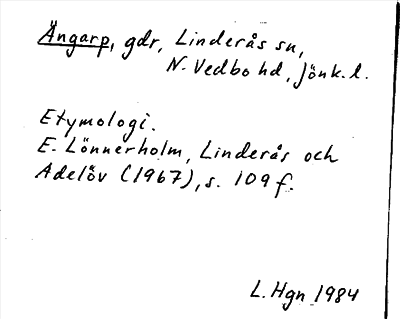 Ängarp, gdr, Linderås sn,
N. Vedbo hd, Jönk. l.
Etymologi.
E. Lönnerholm, Linderås och
Adelöv (1967), s. 109 f.
L. Hgn 1984